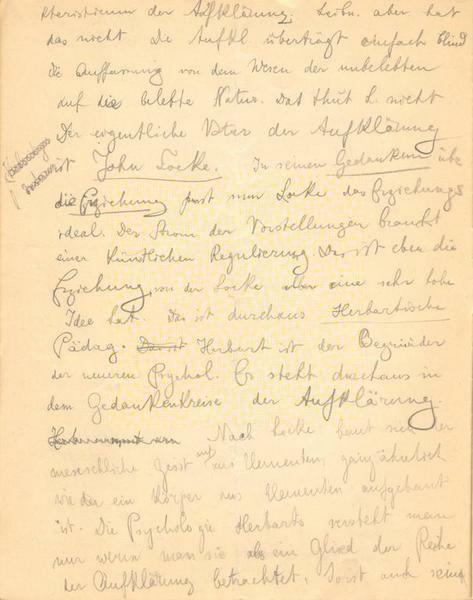 kteristicum der Aufklärung. Leibn. aber hat
das nicht. Die Aufkl überträgt einfach blind
die Auffassung von dem Wesen der unbelebten
auf die belebte Natur. Das thut L. nicht
Der eigentliche Vater der Aufklärung
ist John Locke. In seinen Gedanken übe
die Erziehung passt nun Locke das Erziehungs
ideal. Der Strom der Vorstellungen braucht
einer künstlichen Regulierung. Das ist eben die
Erziehung, von der Locke aber eine sehr hohe
Idee hat. Das ist durchaus Herbartische
Pädag. Das ist Herbart ist der Begründer
der neueren Psychol. Er steht durchaus in
dem Gedankenkreise der Aufklärung.
Nach Locke baut sich der
menschliche Geist auf aus Elementen, ganz ähnlich
wie der ein Körper aus Elementen aufgebaut
ist. Die Psychologie Herbarts versteht man
nur wenn man sie als ein Glied der Reihe
der Aufklärung betrachtet, so ist auch seine